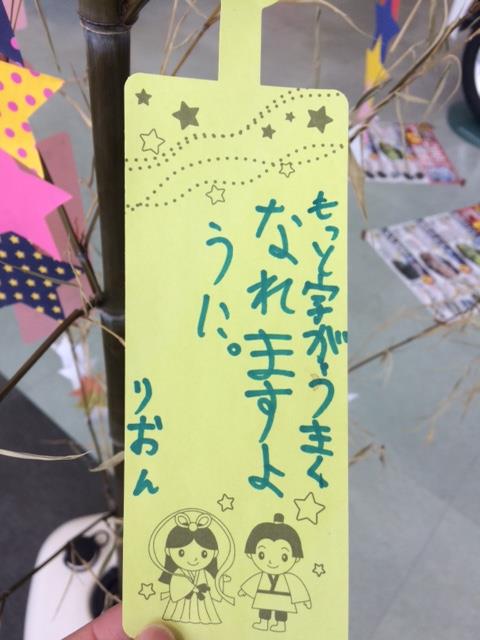 もっと字がうまく
なれますよ
うに。
りおん